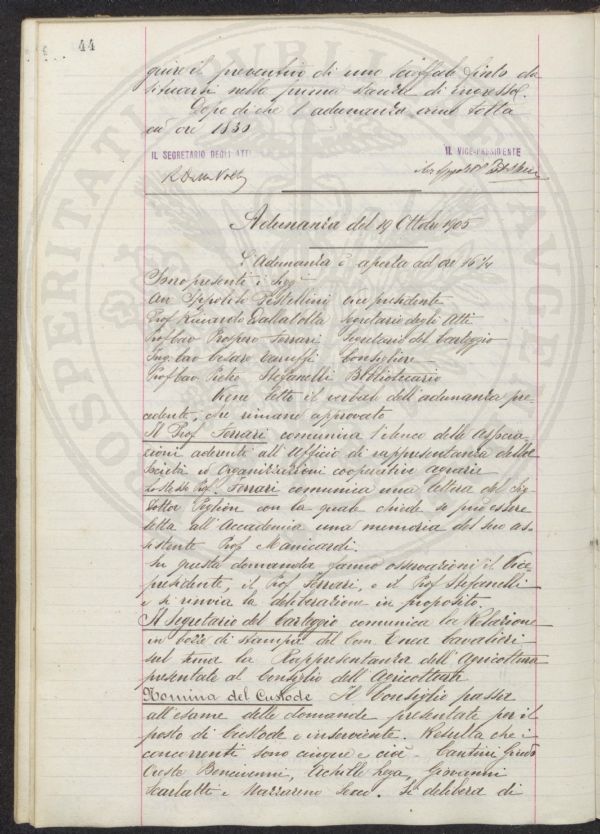 44
guire il preventivo di uno scaffale finto da
situarsi nella prima stanza di Ingresso.
Dopo di che l'adunanza viene tolta
ad ore 18 30
IL SEGRETARIO DEGLI ATTI
IL VICE-PRESIDENTE
Adunanza del 19 Ottobre 1905
L'Adunanza è aperta ad ore 16 1/4
Sono presenti i Sigg.
Avv Ippolito Pestellini vice presidente
Prof Riccardo Dallavolta Segretario degli Atti
Prof Cav Prospero Ferrari Segretario del Carteggio
Ing. Cav Cesare Consigliere
Prof Cav Pietro Stefanelli Bibliotecario
Viene letto il verbale dell'adunanza pre-
cedente, che rimane approvato
Il Prof. Ferrari comunica l'elenco delle Associa-
zioni aderenti all'Ufficio di rappresentanza delle
Società ed Organizzazioni cooperative agrarie
Lo stesso Prof. Ferrari comunica una lettera del Sig.
Dottor con la quale chiede se può essere
letta all'Accademia una memoria del suo as-
sistente Prof. Manicardi.
Su questa domanda fanno osservazioni il Vice-
presidente, il Prof Ferrari, e il Prof Stefanelli
e si rinvia la deliberazione in proposito.
Il Segretario del Carteggio comunica la Relazione
in bozze di stampa del Com. Enea Cavalieri
sul tema la Rappresentanza dell'Agricoltura
presentate al Consiglio dell'Agricoltura
Nomina del Custode Il Consiglio passa
all'esame delle domande presentate per il
posto di Custode e inserviente. Resulta che i
concorrenti sono cinque e cioè Cantini Guido
Oreste Bencivenni, Achille Lega, Giovanni
Scarlatti e Nazzareno. Si delibera di
PROSPERITATI PUBLICAE AUGENDAE